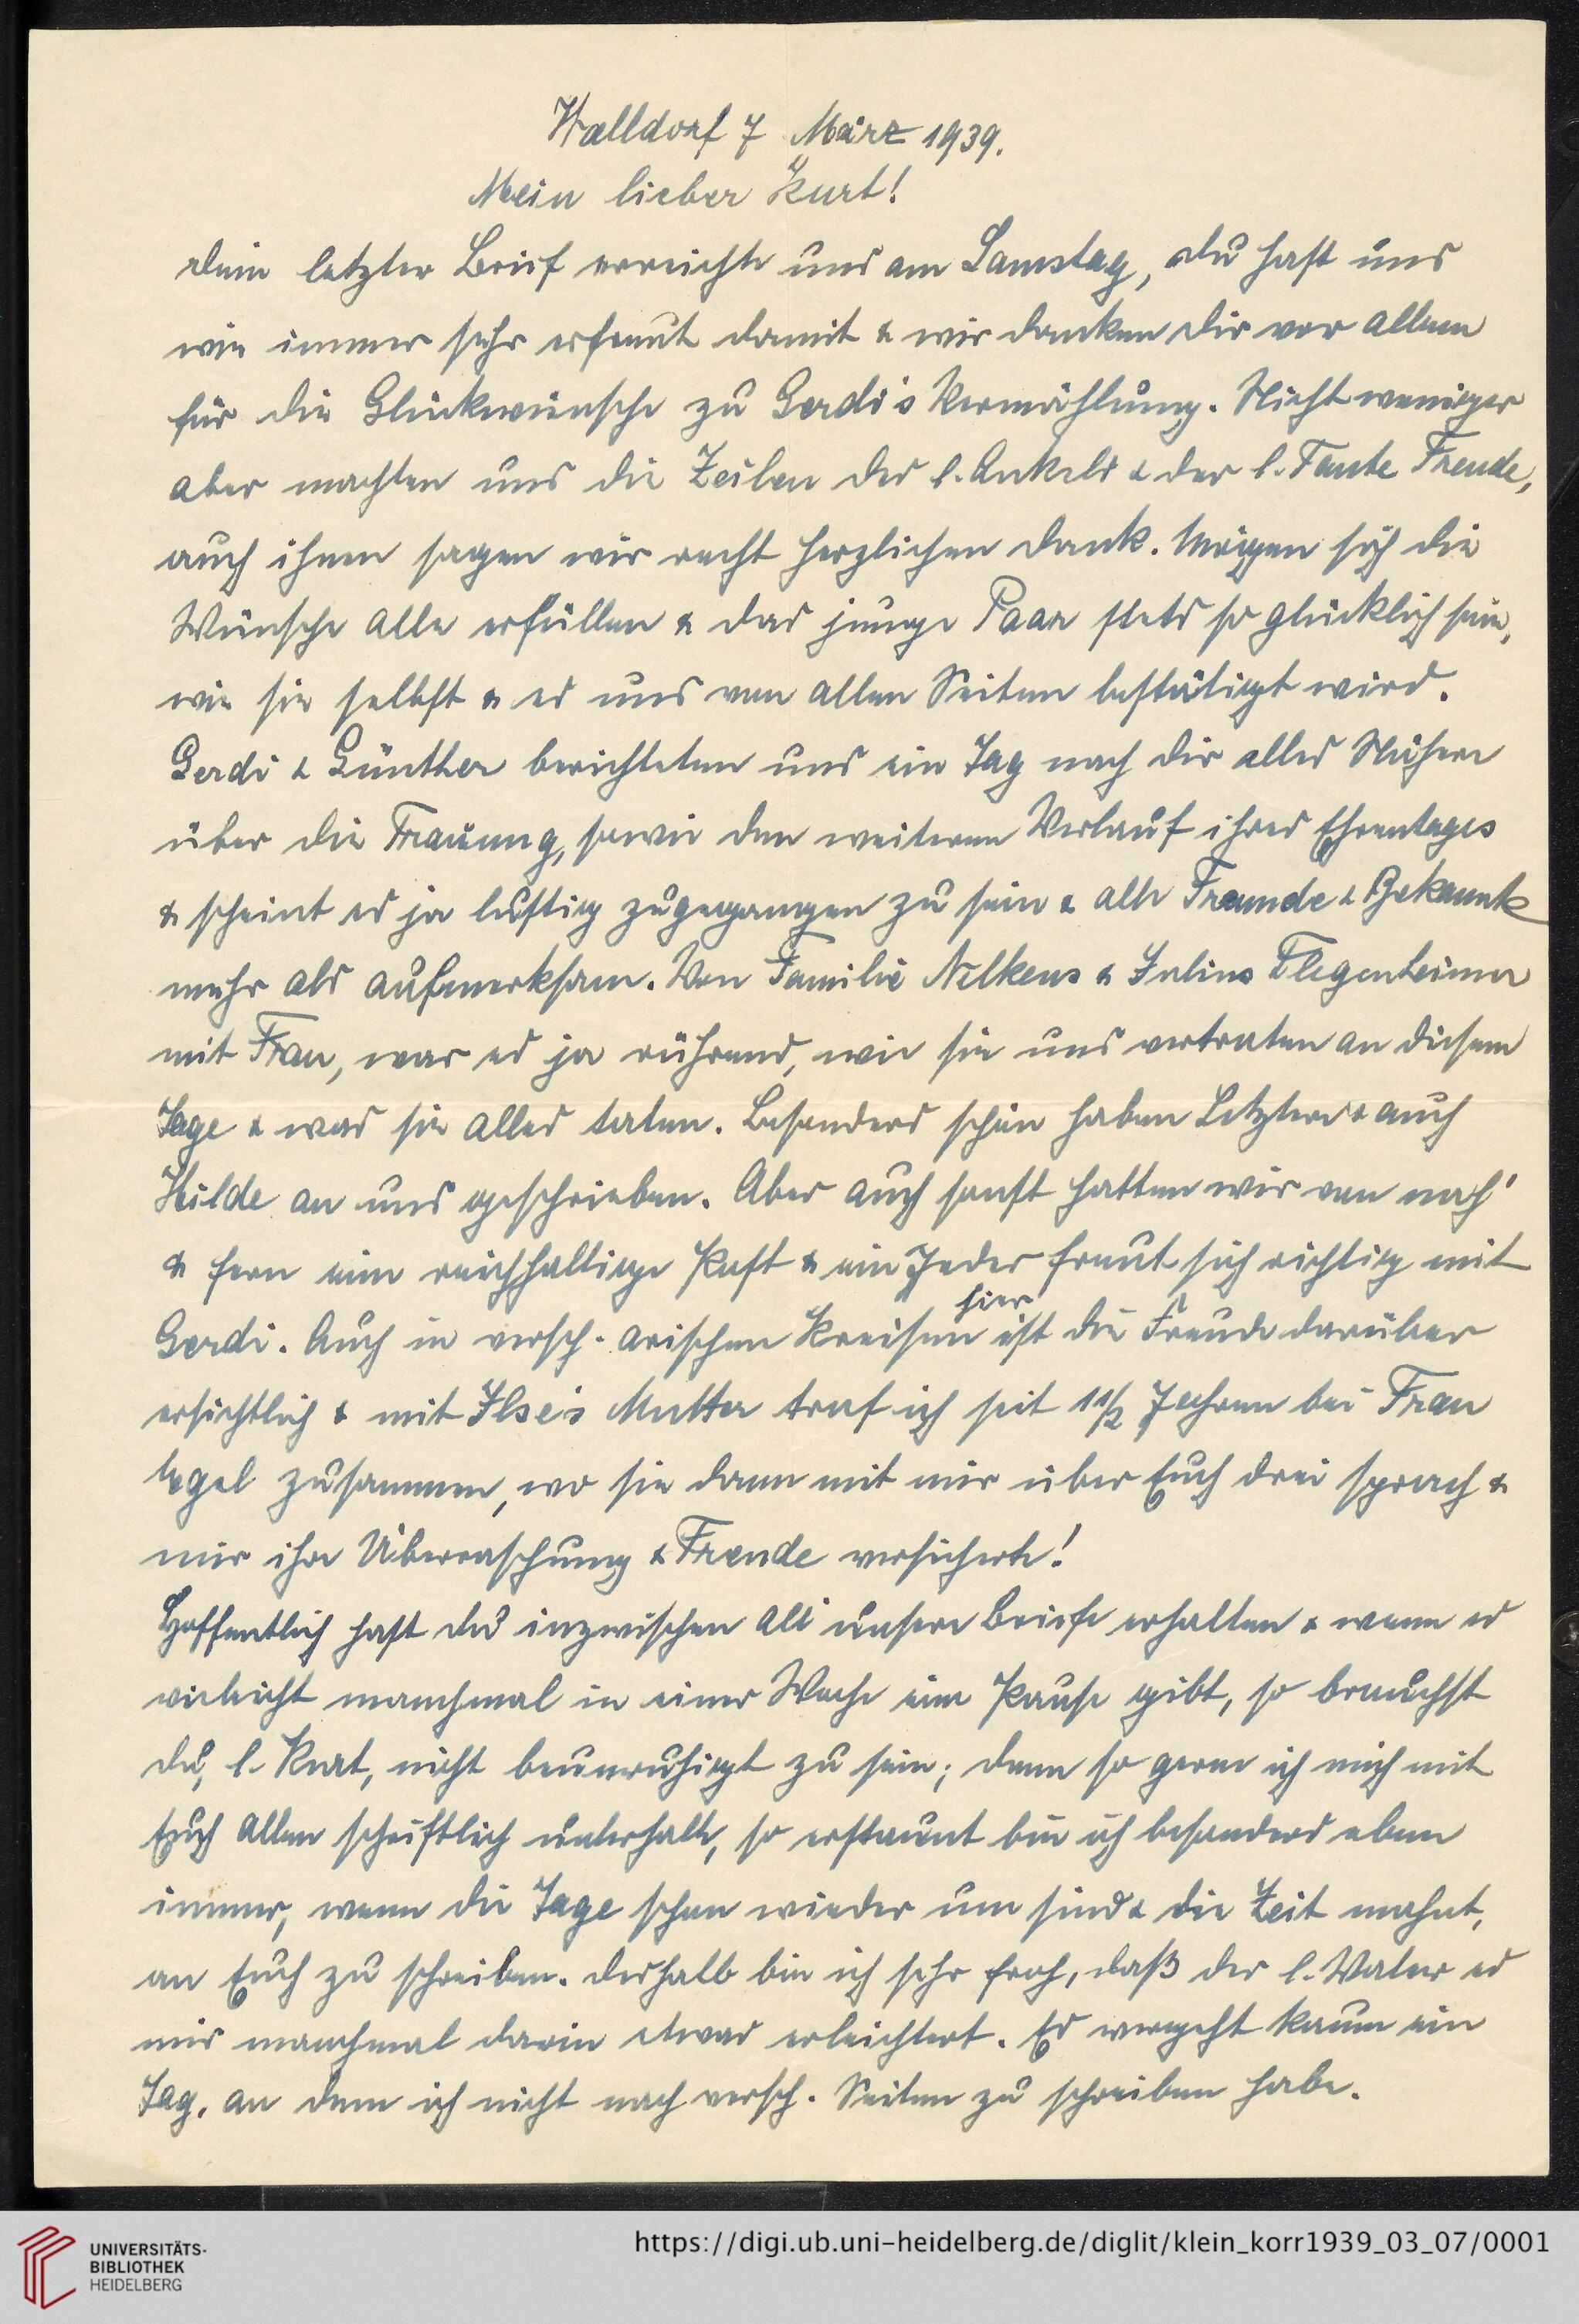 Walldorf 7 März 1939.
Mein lieber Kurt!
Dein letzter Brief erreichte uns am Samstag, Du hast uns
wie immer sehr erfreut damit & wir danken Dir vor allem
für die Glückwünsche zu Gerdi's Vermählung. Nicht weniger
aber machten uns die Zeilen des l. Onkels & der l. Tante Freude,
auch ihnen sagen wir recht herzlichen Dank. Mögen sich die
Wünsche alle erfüllen & das junge Paar stets so glücklich sein,
wie sie selbst & es uns von allen Seiten bestätigt wird.
Gerdi & Günther berichteten uns ein Tag nach Dir alles Nähere
über die Trauung, sowie den weiteren Verlauf ihres Ehrentages
& scheint es ja lustig zugegangen zu sein & alle Freunde & Bekannte
mehr als aufmerksam. Von Familie Nelkens & Julius Flegenheimer
mit Frau, war es ja rührend, wie sie uns vertraten an diesem
Tage & was sie alles taten. Besonders schön haben Letztere & auch
Hilde an uns geschrieben. Aber auch sonst hatten wir von nah'
& fern eine reichhaltige Post & ein Jeder freut sich richtig mit
Gerdi. Auch in versch. arischen Kreisen hier ist die Freude darüber
ersichtlich & mit Ilse's Mutter traf ich seit 1 1/2 Jahren bei Frau
zusammen, wo sie dann mit mir über Euch drei sprach &
mir ihre Überraschung & Freude versicherte!
Hoffentlich hast Du inzwischen all unsere Briefe erhalten & wenn es
vieleicht manchmal in einer Woche eine Pause gibt, so brauchst
Du, l. Kurt, nicht beunruhigt zu sein; denn so gerne ich mich mit
Euch allen schriftlich unterhalte, so erstaunt bin ich besonders eben
immer, wenn die Tage schon wieder um sind & die Zeit mahnt,
an Euch zu schreiben. Deshalb bin ich sehr froh, daß der l. Vater es
mir manchmal darin etwas erleichtert. Es vergeht kaum ein
Tag, an dem ich nicht nach versch. Seiten zu schreiben habe.
UNIVERSITÄTS-
BIBLIOTHEK
HEIDELBERG
https://digi.ub.uni-heidelberg.de/diglit/klein_korr1939_03_07/0001